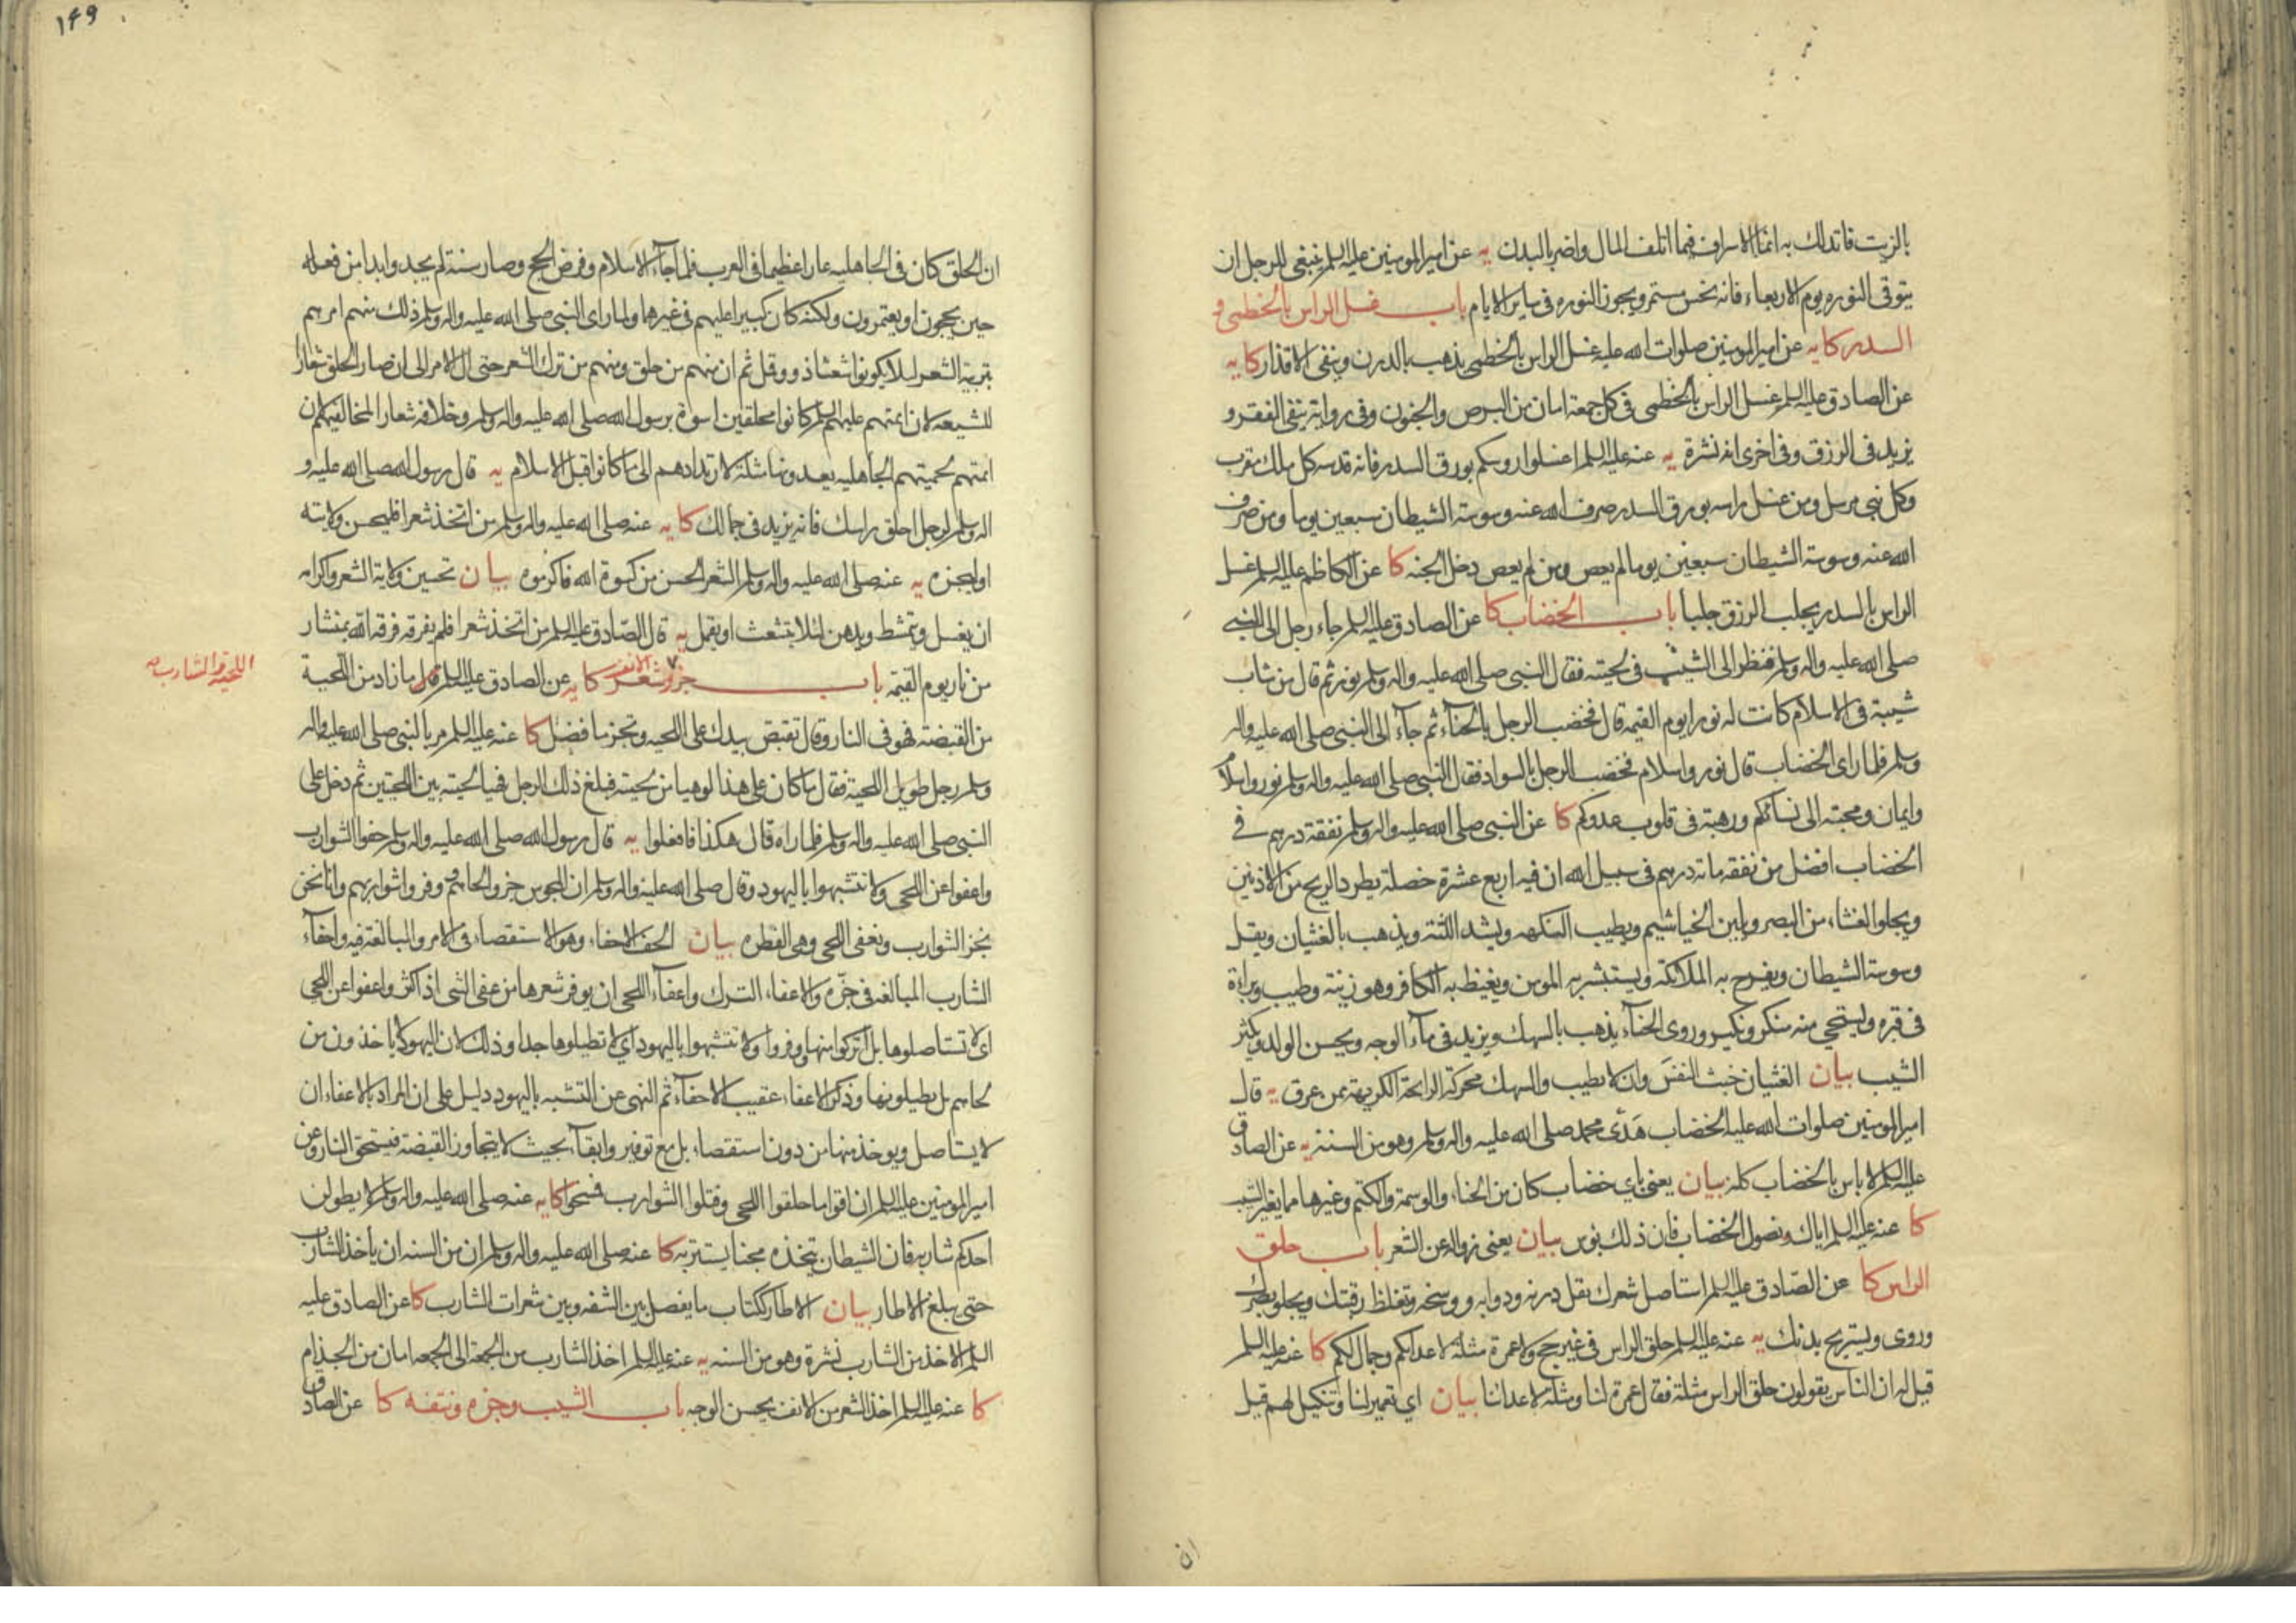 بالزيت فاتدلك به انما الاسراف فيما اتلف المال واضر بالبدن يه عن امير المومنين عليه السلم ينبغي للرجل ان
يتوقى النوره يوم الاربعاء فانه نحس مستمر ويجوز النوره في ساير الايام باب غسل الراس بالخطمي و
السدر كا يه عن امير المومنين صلوات الله عليه غسل الراس بالخطمى يذهب بالدرن وينفى الاقذار كا يه
عن الصادق عليه السلم غسل الراس بالخطمى فى كل جمعة امان من البرص والجنون وفى رواية ينفى الفقر و
يزيد فى الرزق وفى اخرى انه نشرة يه عنه عليه السلم اغسلوا روسكم بورق السدر فانه قدسه كل ملك مقرب
وكل نبي مرسل ومن غسل راسه بورق السدر صرف الله عنه وسوسة الشيطان سبعين يوما ومن صرف
الله عنه وسوسة الشيطان سبعين يوما لم يعص ومن لم يعص دخل الجنه كا عن الكاظم عليه السلم غسل
الراس بالسدر يجلب الرزق جلبا باب الخضاب كا عن الصادق عليه السلم جاء رجل الى النبي
صلى الله عليه واله وسلم فنظر الى الشيب فى لحيته فقال النبى صلى الله عليه واله وسلم نور ثم قال من شاب
شيبة فى الاسلام كانت له نورا يوم القيمه قال فخضب الرجل بالحناء ثم جاء الى النبى صلى الله عليه واله
وسلم فلما راى الخضاب قال نور واسلام فخضب الرجل بالسواد فقال النبى صلى الله عليه واله وسلم نور واسلام
وايمان ومحبة الى نسائكم ورهبة فى قلوب عدوكم كا عن النبى صلى الله عليه واله وسلم نفقة درهم فى
الخضاب افضل من نفقه مائة درهم فى سبيل الله ان فيه اربع عشرة خصلة يطرد الريح من الاذنين
ويجلوا الغشاء من البصر ويلين الخياشيم ويطيب النكهه ويشد اللثة ويذهب بالغثيان ويقل
وسوسة الشيطان ويفرح به الملائكة ويستبشر به المومن ويغيظ به الكافر وهو زينة وطيب وبراءة
فى قبره ويستحي منه منكر ونكير وروى الحناء يذهب بالسهك ويزيد فى ماء الوجه ويحسن الولد ويكثر
الشيب بيان الغثيان خبث النفس وان لا يطيب والسهك محركة الرايحة الكريهة ممن عرق يه قال
امير المومنين صلوات الله عليه الخضاب هَدْى محمد صلى الله عليه واله وسلم وهو من السنه يه عن الصادق
عليه السلم لا باس بالخضاب كله بيان يعنى باي خضاب كان من الحناء والوسمة والكتم وغيرها مما يغير الشيب
كا عنه عليه السلم اياك ونصول الخضاب فان ذلك بؤس بيان يعنى زواله عن الشعر باب حلق
الراس كا عن الصادق عليه السلم استاصل شعرك يقل درنه ودوابه ووسخه وتغلظ رقبتك ويجلو بصرك
وروى ويستريح بدنك يه عنه عليه السلم حلق الراس فى غير حج ولا عمرة مثلة لاعدائكم وجمال لكم كا عنه عليه السلم
قيل له ان الناس يقولون حلق الراس مثلة فقال عمرة لنا ومثلة لاعدائنا بيان اي تعمير لنا وتنكيل لهم قيل
ان
١٤٩
ان الحلق كان فى الجاهليه عارا عظيما فى العرب فلما جاء الاسلام وفرض الحج وصار سنة لم يجدوا بدا من فعله
حين يحجون او يعتمرون ولكنه كان كبيرا عليهم فى غيرهما ولما راى النبى صلى الله عليه واله وسلم ذلك منهم امرهم
بتربية الشعر لئلا يكونوا شعثا ذوو قمل ثم ان منهم من حلق ومنهم من ترك الشعر حتى ال الامر الى ان صار الحلق شعارا
للشيعه لان ائمتهم عليهم السلم كانوا محلقين اسوة برسول الله صلى الله عليه واله وسلم وخلافه شعار المخالفيهم لان
ائمتهم لحميتهم الجاهليه يعدونها مثلة لارتدادهم الى ما كانوا قبل الاسلام يه قال رسول الله صلى الله عليه و
اله وسلم لرجل احلق راسك فانه يزيد فى جمالك كا يه عنه صلى الله عليه واله وسلم من اتخذ شعرا فليحسن ولايته
او ليجزه يه عنه صلى الله عليه واله وسلم الشعر الحسن من كسوة الله فاكرموه بيان تحسين ولاية الشعر واكرامه
ان يغسل ويمشط ويدهن لئلا يتشعث او يقمل يه قال الصادق عليه السلم من اتخذ شعرا فلم يفرقه فرقه الله بمنشار
من نار يوم القيمه باب جز وشعر الانف كا يه عن الصادق عليه السلم قال ما زاد من اللحية
اللحية والشارب صح
من القبضة فهو فى النار وقال تقبض بيدك على اللحيه وتجز ما فضل كا عنه عليه السلم مر بالنبى صلى الله عليه واله
وسلم رجل طويل اللحية فقال ما كان على هذا لو هيا من لحيته فبلغ ذلك الرجل فهيا لحيته بين اللحيتين ثم دخل على
النبي صلى الله عليه واله وسلم فلما راه قال هكذا فافعلوا يه قال رسول الله صلى الله عليه واله وسلم حفوا الشوارب
واعفوا عن اللحى ولا تتشبهوا باليهود وقال صلى الله عليه واله وسلم ان المجوس جزوا لحاهم ووفروا شواربهم وانا نحن
نجز الشوارب ونعفى اللحى وهى الفطره بيان الحف الاحفاء وهو الاستقصاء فى الامر والمبالغة فيه واحفاء
الشارب المبالغه فى جزّه والاعفاء الترك واعفاء اللحى ان يوفر شعرها من عفى الشى اذا كثر واعفوا عن اللحى
اى لا تستاصلوها بل اتركوا منها ووفروا ولا تتشبهوا باليهود اي لا تطيلوها جدا وذلك لان اليهود لا ياخذون من
لحاهم بل يطيلونها وذكر الاعفاء عقيب الاحفاء ثم النهى عن التشبه باليهود دليل على ان المراد بالاعفاء ان
لا يستاصل ويوخذ منها من دون استقصاء بل مع توفير وابقاء بحيث لا يتجاوز القبضة فيستحق النار وعن
امير المومنين عليه السلم ان اقواما حلقوا اللحى وفتلوا الشوارب فمسخوا كا يه عنه صلى الله عليه واله وسلم لا يطولن
احدكم شاربه فان الشيطان يتخذه مجنا يستتر به كا عنه صلى الله عليه واله وسلم ان من السنه ان يأخذ الشارب
حتى يبلغ الاطار بيان الاطار ككتاب ما يفصل بين الشفه وبين شعرات الشارب كا عن الصادق عليه
السلم الاخذ من الشارب نشرة وهو من السنه يه عنه عليه السلم اخذ الشارب من الجمعة الى الجمعه امان من الجذام
كا عنه عليه السلم اخذ الشعر من الانف يحسن الوجه باب الشيب وجزه ونتفه كا عن الصادق